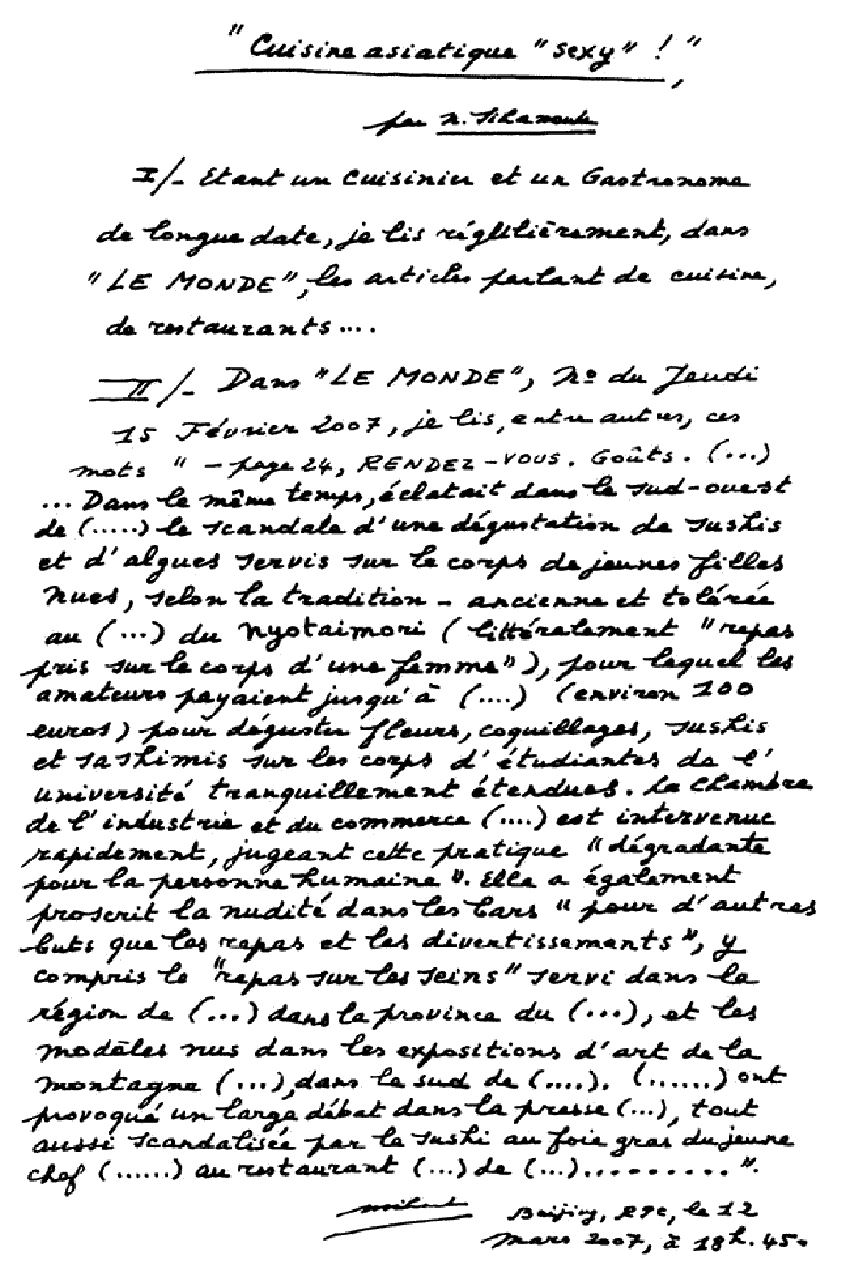 " Cuisine asiatique "sexy" ! "
par N.
I/- Etant un Cuisinier et un Gastronome
de longue date, je lis régulièrement, dans
"LE MONDE", les articles parlant de cuisine,
de restaurants....
II/- Dans "LE MONDE", No du Jeudi
15 Février 2007, je lis, entre autres, ces
mots " - page 24, RENDEZ-VOUS. Goûts. (...)
... Dans le même temps, éclatait dans le sud-ouest
de (.....) le scandale d'une dégustation de sushis
et d'algues servis sur le corps de jeunes filles
nues, selon la tradition - ancienne et tolérée
au (...) du nyotaimori (littéralement "repas
pris sur le corps d'une femme"), pour lequel les
amateurs payaient jusqu'à (....) (environ 100
euros) pour déguster fleurs, coquillages, sushis
et sashimis sur les corps d'étudiantes de l'
université tranquillement étendues. La Chambre
de l'industrie et du commerce (....) est intervenue
rapidement, jugeant cette pratique "dégradante
pour la personne humaine". Elle a également
proscrit la nudité dans les bars "pour d'autres
buts que les repas et les divertissements", y
compris le "repas sur les seins" servi dans la
région de (...) dans la province du (...), et les
modèles nus dans les expositions d'art de la
montagne (...), dans le sud de (....). (......) ont
provoqué un large débat dans la presse (...), tout
aussi scandalisée par le sushi au foie gras du jeune
chef (......) au restaurant (...) de (...)......... ".
Beijing, RPC, le 12
Mars 2007, à 18h.45.